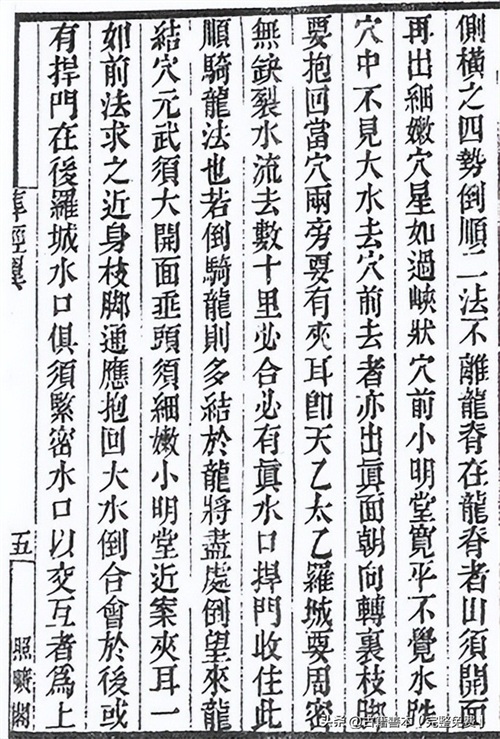 側橫之四勢倒順二法不離龍脊在龍脊者山須開面
再出細嫩穴星如過峽狀穴前小明堂寬平不覺水跌
穴中不見大水去穴前去者亦出眞面朝向轉裏枝脚
要抱回當穴兩旁要有夾耳卽天乙太乙羅城要周密
無缺裂水流去數十里必合必有眞水口捍門收住此
順騎龍法也若倒騎龍則多結於龍將盡處倒望來龍
結穴元武須大開面垂頭須細嫩小明堂近案夾耳一
如前法求之近身枝脚通應抱回大水倒合會於後或
有捍門在後羅城水口俱須緊密水口以交互者爲上
葬經翼
五
照曠閣
头条 @古籍善本(完整免费)